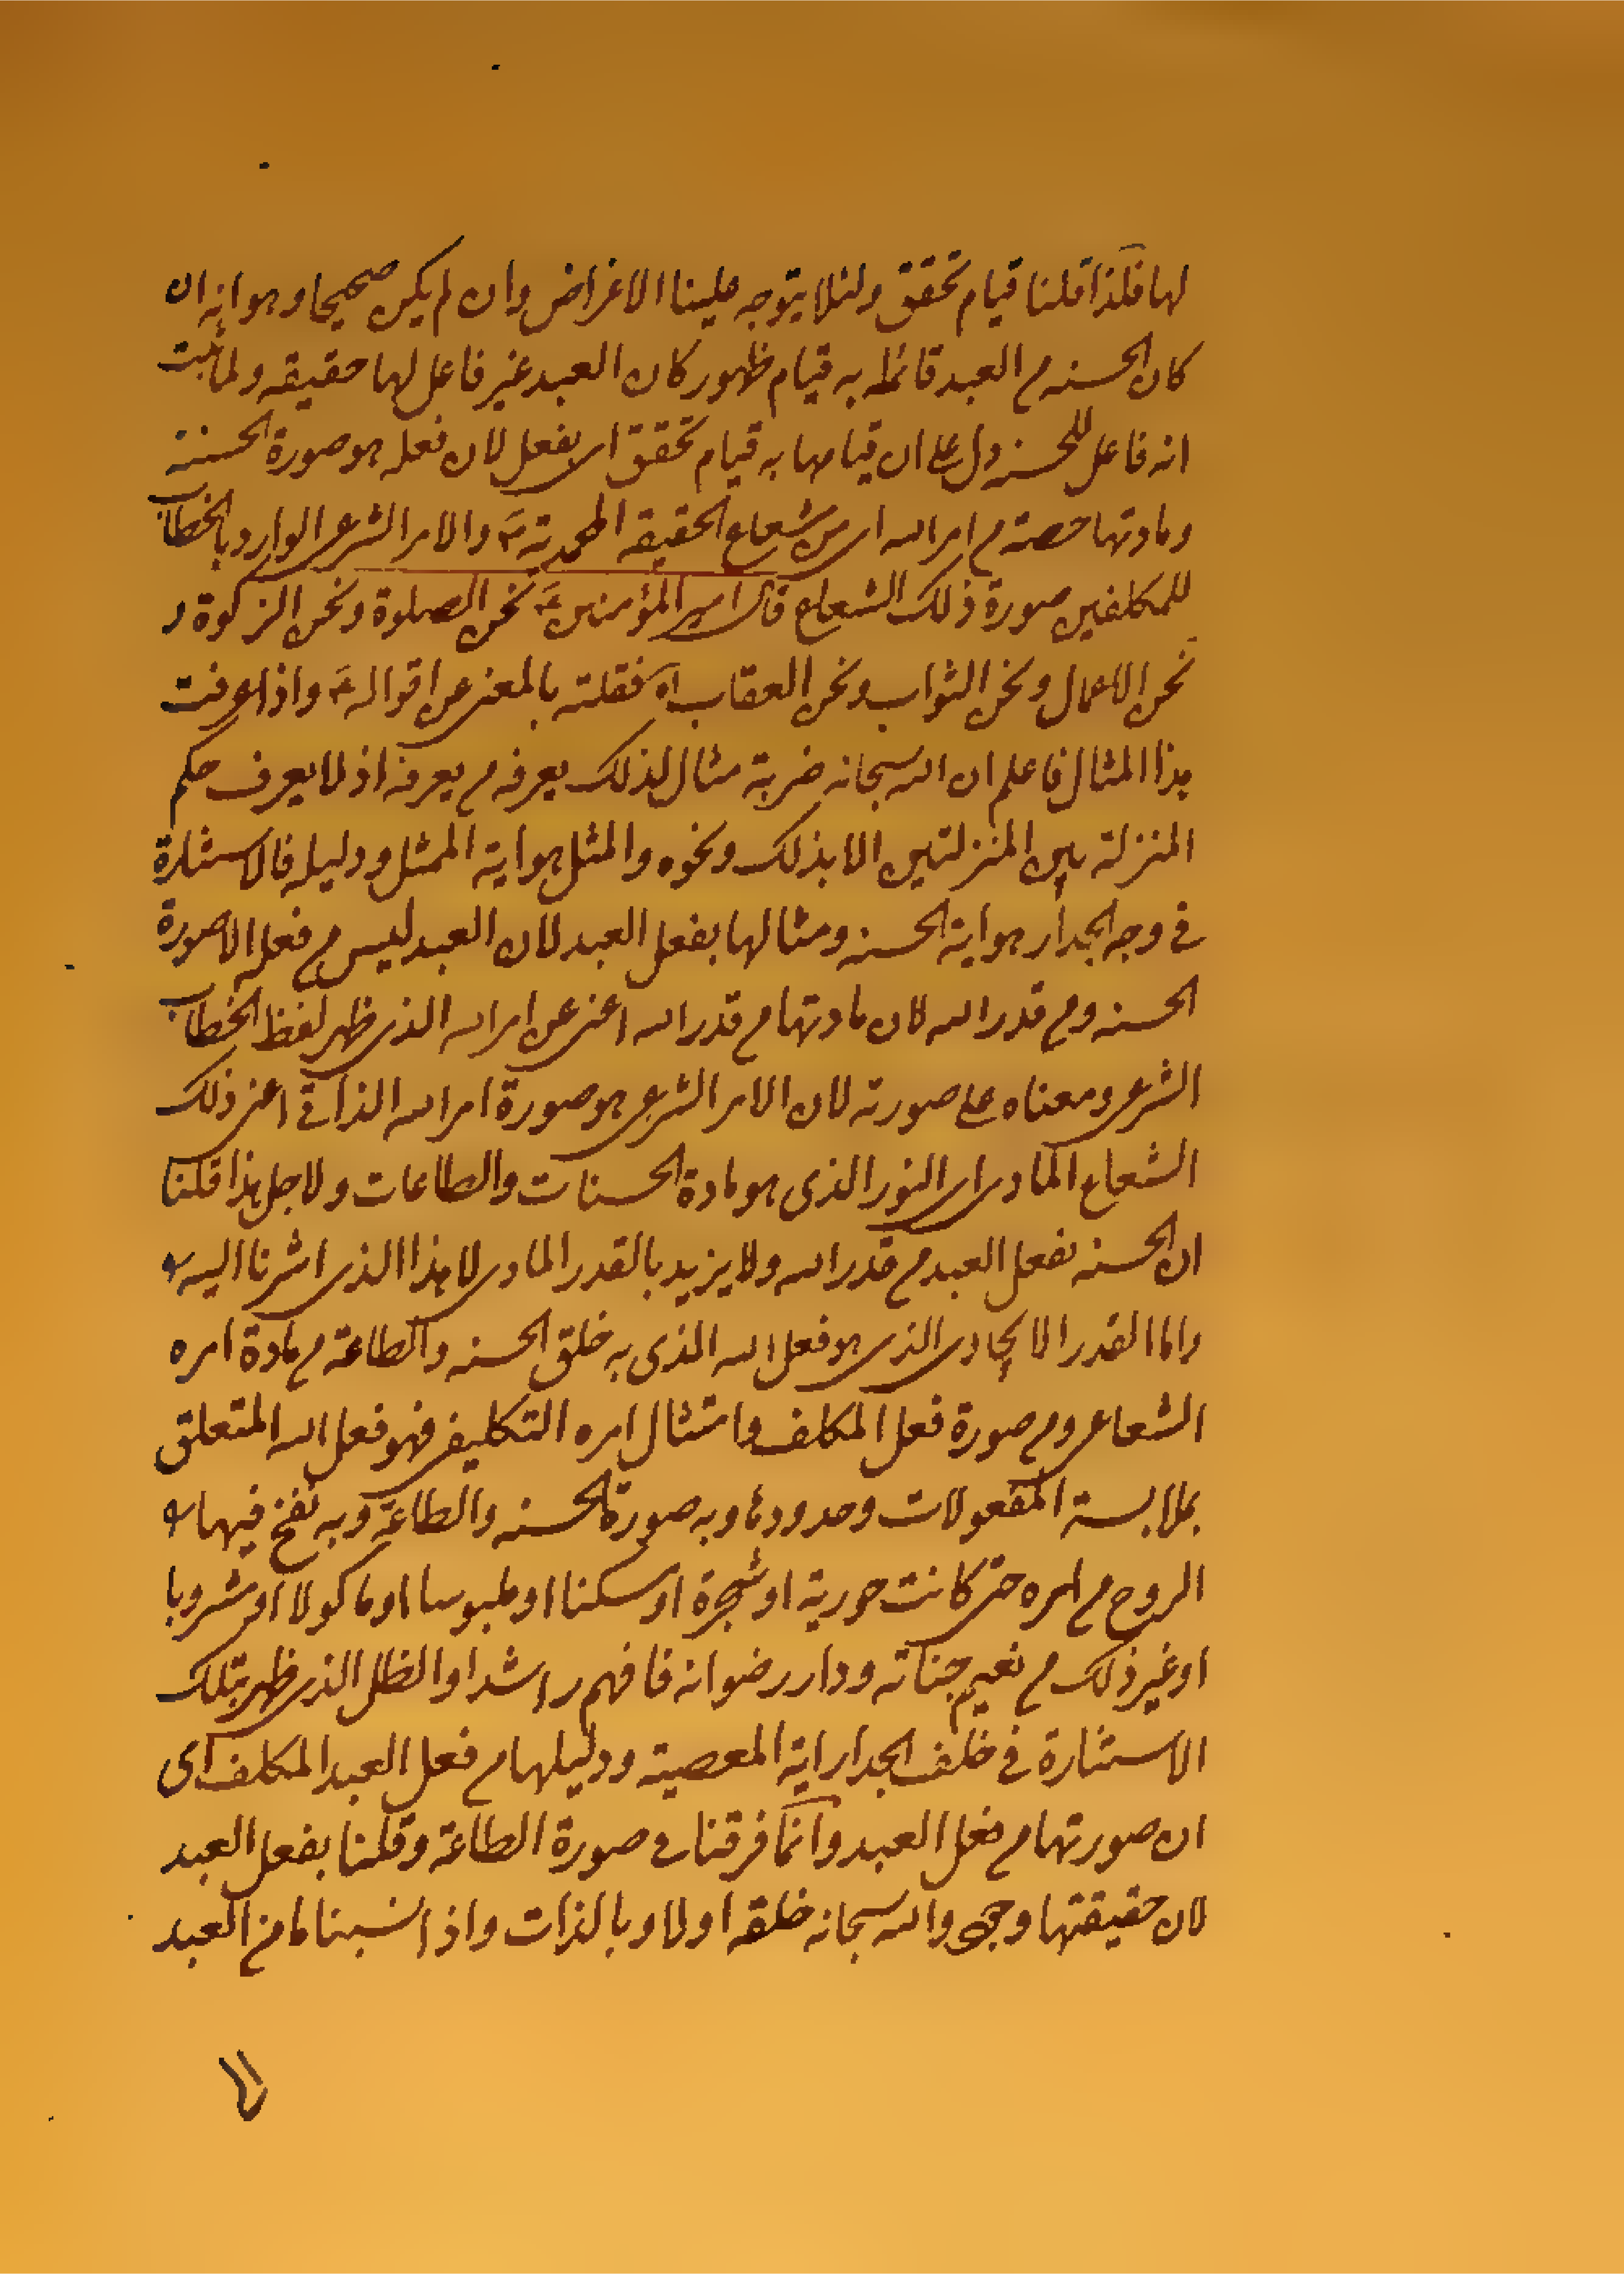 لها فلذا قلنا قيام تحقق ولئلا يتوجه علينا الاعراض وان لم يكن صحيحا وهو انه ان
كان الحسنه من العبد قائما به قيام ظهور كان العبد غير فاعل لها حقيقه ولما ثبت
انه فاعل للحسنه دل على ان قيامها به قيام تحقق اى بفعل لان فعله هو صورة الحسنة
ومادتها حصة من امر الله اى من شعاع الحقيقه المحمدية ص والامر الشرعى الوارد بالخطاب
للمكلفين صورة ذلك الشعاع قال امير المؤمنين ع نحن الصلوة ونحن الزكوة و
نحن الاعمال ونحن الثواب ونحن العقاب اه نقلته بالمعنى عن اقواله ع واذا عرفت
هذا المثال فاعلم ان الله سبحانه ضربة مثال لذلك يعرفه من يعرفه اذ لا يعرف حكم
المنزلة بين المنزلتين الا بذلك ونحوه والمثل هو اية الممثل ودليله فالاستنارة
فى وجه الجدار هو اية الحسنه ومثالها بفعل العبد لان العبد ليس من فعله الا صورة
الحسنه ومن قدر الله لان مادتها من قدر الله اعنى عن امر الله الذى ظهر لفظ الخطاب
الشرعى ومعناه على صورته لان الامر الشرعى هو صورة امر الله الذاتى اعنى ذلك
الشعاع المادى اى النور الذى هو مادة الحسنات والطاعات ولاجل هذا قلنا
ان الحسنه بفعل العبد من قدر الله ولا يزيد بالقدر المادى لا هذا الذى اشرنا اليه
واما القدر الايجادى الذى هو فعل الله الذى به خلق الحسنه والطاعة من مادة امره
الشعاعى ومن صورة فعل المكلف وامتثال امره التكليفى فهو فعل الله المتعلق
بملابسة المفعولات وحدودها وبه صورة الحسنه والطاعة وبه نفخ فيها
الروح من امره حتى كانت حورية او شجرة او سكنا او ملبوسا او ماكولا او مشروبا
او غير ذلك من نعيم جناته ودار رضوانه فافهم راشدا والظل الذى ظهر بتلك
الاستنارة فى خلف الجدار اية المعصية ودليلها من فعل العبد المكلف اى
ان صورتها من فعل العبد وانما فرقنا فى صورة الطاعة وقلنا بفعل العبد
لان حقيقتها وجهى والله سبحانه خلقه اولا وبالذات واذا نسبنا ما من العبد